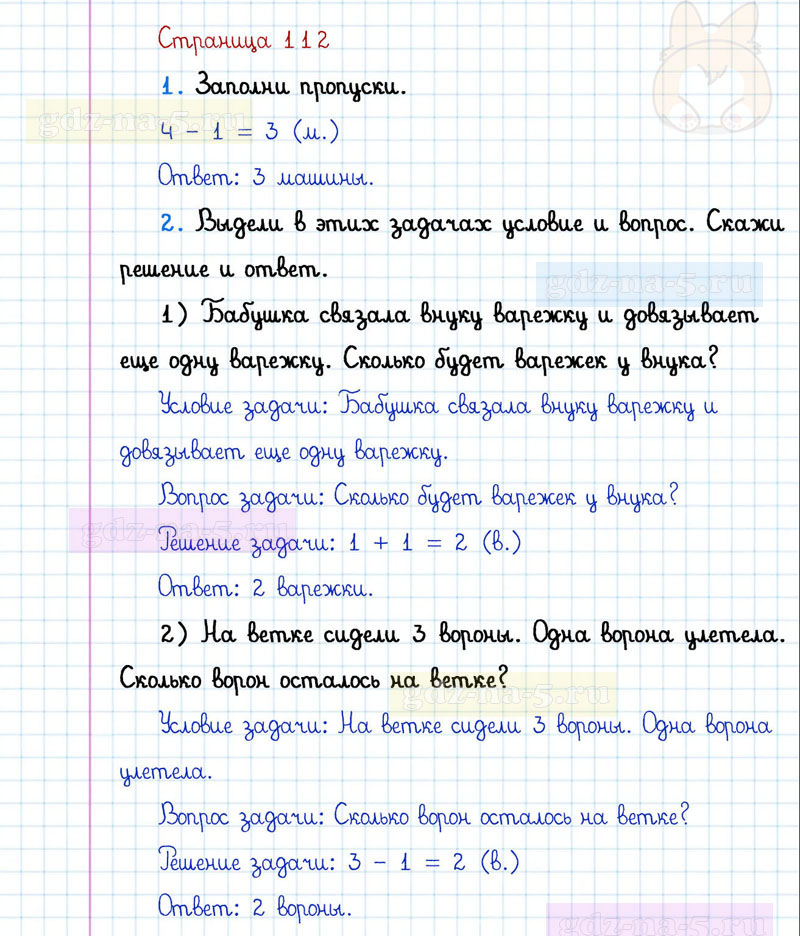 Страница 112
1. Заполни пропуски.
gdz-na-5.ru
4 - 1 = 3 (м.)
Ответ: 3 машины.
2. Выдели в этих задачах условие и вопрос. Скажи
решение и ответ.
gdz-na-5.ru
1) Бабушка связала внуку варежку и довязывает
еще одну варежку. Сколько будет варежек у внука?
Условие задачи: Бабушка связала внуку варежку и
довязывает еще одну варежку.
Вопрос задачи: Сколько будет варежек у внука?
gdz-na-5.ru
Решение задачи: 1 + 1 = 2 (в.)
Ответ: 2 варежки.
2) На ветке сидели 3 вороны. Одна ворона улетела.
Сколько ворон осталось на ветке?
gdz-na-5.ru
Условие задачи: На ветке сидели 3 вороны. Одна ворона
улетела.
Вопрос задачи: Сколько ворон осталось на ветке?
Решение задачи: 3 - 1 = 2 (в.)
Ответ: 2 вороны.
gdz-na-5.ru